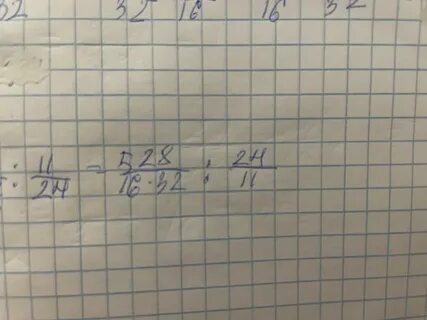 32 32 16 16 32
: 11/24 = 528/16·32 : 24/11